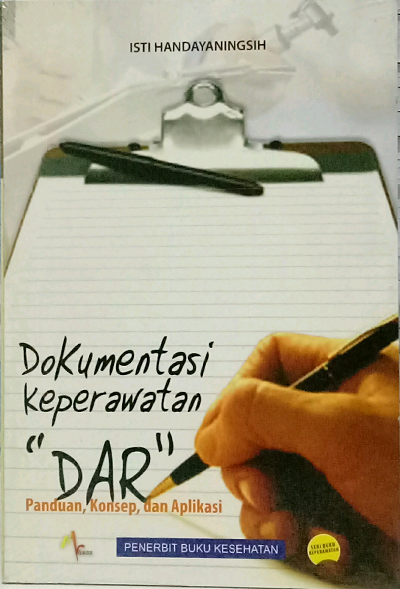 ISTI HANDAYANINGSIH
Dokumentasi
keperawatan
"DAR"
Panduan, Konsep, dan Aplikasi
PENERBIT BUKU KESEHATAN
SERI BUKU
KEPERAWATAN